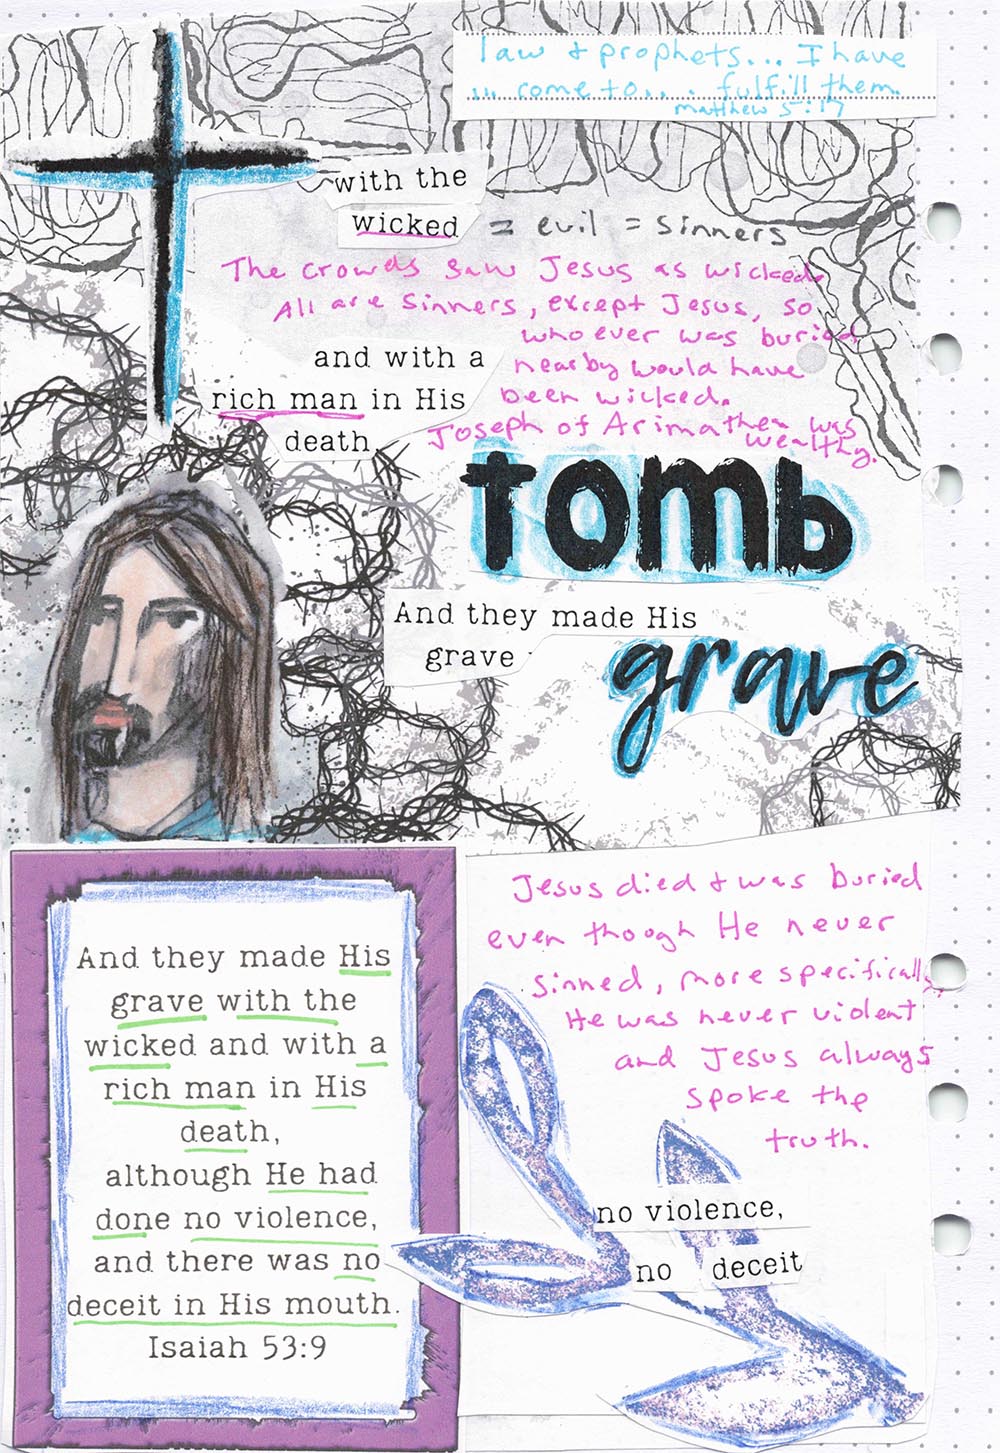 law & prophets... I have
... come to... fulfill them.
matthew 5:17
with the
wicked = evil = sinners
The crowds saw Jesus as wicked.
All are sinners, except Jesus, so
whoever was buried
and with a
nearby would have
rich man in His
been wicked.
death
Joseph of Arimathea was
wealthy.
tomb
And they made His
grave
grave
And they made His
grave with the
wicked and with a
rich man in His
death,
although He had
done no violence,
and there was no
deceit in His mouth.
Isaiah 53:9
Jesus died & was buried
even though He never
sinned, more specifically
He was never violent
and Jesus always
spoke the
truth.
no violence,
no deceit